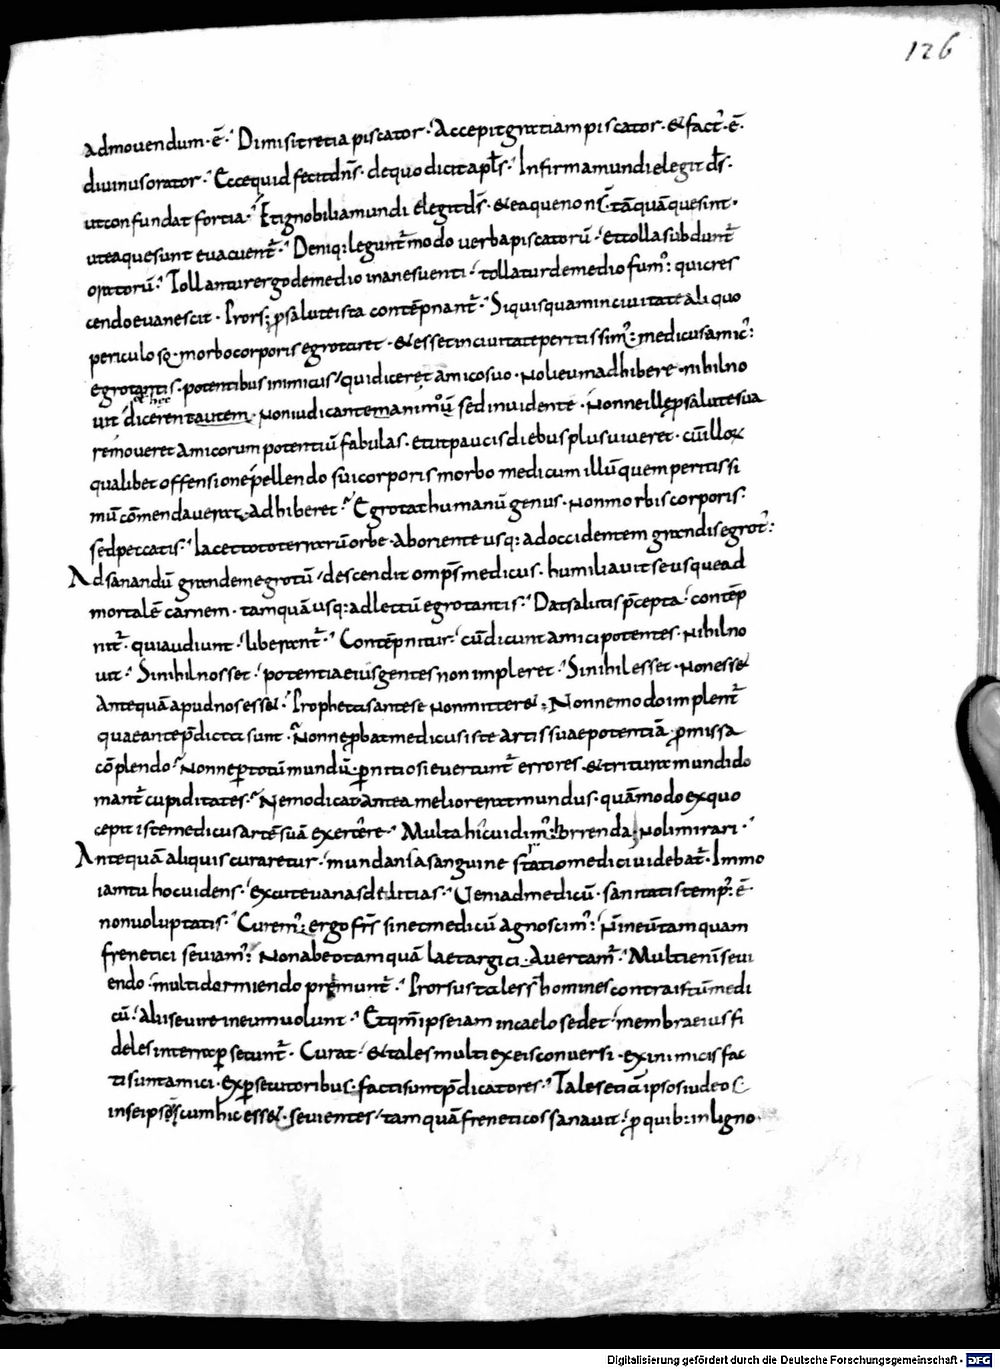 126
admouendum·ē· Dimisit retia piscator· Accepit gratiam piscator· & fact᾽·ē·
diuinus orator· Ecce quid fecit dn̄s· de quo dicit apłs· Infirma mundi elegit ds̄·
ut confundat fortia· Et ignobilia mundi elegit ds̄· & ea que non s̄ tāquā que sint·
ut ea que sunt euacuent᷑· Deniq: legunt᷑ modo uerba piscatorū· et colla subdunt᷑
oratorū· Tollantur ergo de medio inanes uenti· tollatur de medio fum᾽: qui cres
cendo euanescit· Prors᾽ p̱ salute ista contēpnant᷑· Si quisquam in ciuitate aliquo
periculoso· morbo corporis egrotaret· & esset in ciuitate peritissim᾽: medicus amic᾽:
egrotantis· potentibus inimicus qui diceret amico suo· Noli eum adhibere· nihil no
uit diceren tautem· Non iudicante animū sed inuidente· Nonne ille p̱ salute sua
remoueret amicorum potentiū fabulas· et ut paucis diebus plus uiueret· cū illoꝝ
qualibet offensione pellendo sui corporis morbo medicum illū quem peritissi
mū cōmendauerat· adhiberet· Egrotat humanū genus· Non morbis corporis·
sed peccatis· Iacet toto terrarū orbe· ab oriente usq: ad occidentem grandis egrot᾽:
Ad sanandū grandem egrotū· descendit omp̄s medicus· humiliauit se usque ad
mortalē carnem· tamquā usq: ad lectū egrotantis· Dat salutis p̄cepta· contēp
nit᷑· qui audiunt· liberent᷑· Contēpnitur· cū dicunt amici potentes· Nihil no
uit· Si nihil nosset· potentia eius gentes non impleret· Si nihil esset· Non esse
Antequā apud nos esse· Prophetas ante se non mittere· Nonne modo implent᷑
quae ante p̄dicta sunt· Nonne p̱bat medicus iste artis suae potentiā· promissa
cōplendo· Nonne ꝑ totū mundū· pernitiosi euertunt᷑ errores· & tritura mundi do
mant᷑ cupiditates· Nemo dicat antea melior erat mundus· quā modo ex quo
cepit iste medicus artē suā exercere· Multa hic uidim᾽: horrenda· Noli mirari·
Antequā aliquis curaretur· munda n̄ sa sanguine statio medici uidebat᷑· Immo
iam tu hoc uidens· excute uanas delitias· Ueni ad medicū· sanitatis temp᾽: ē·
non uoluptatis· Curem᾽: ergo frs̄ si n et medicū agnoscim᾽: N̄ in eū tamquam
frenetici seuiam᾽: Non ab eo tamquā laetargici· Auertam᷑· Multi enī seui
endo· multi dormiendo premunt᷑· Prorsus tales s̄ homines contra istū medi
cū· alii seuire in eum uolunt· Et qm̄ ipse iam in caelo sedet· membra eius fi
deles in terra ꝑsecunt᷑· Curat· & tales multi ex eis conuersi· ex inimicis fac
ti sunt amici· ex ꝑsecutoribus· facti sunt p̄dicatores· Tales etiā ipsos iudeos
in se ipsos cum hic esse· seuientes· tamquā freneticos sanauit· p̱ quib: in ligno·
Digitalisierung gefördert durch die Deutsche Forschungsgemeinschaft - DFG